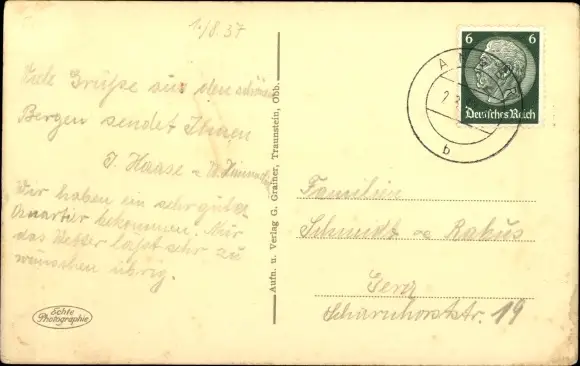 1./8.37
Viele Grüße aus den schönen
Bergen sendet Ihnen
J. Haase u.
Wir haben ein sehr gutes
Quartier bekommen. Nur
das Wetter läßt sehr zu
wünschen übrig.
Echte
Photographie
Aufn. u. Verlag G. Grainer, Traunstein, Obb.
6 6
Deutsches Reich
b
Familien
Schmidt Rakus
Scharnhorststr. 19